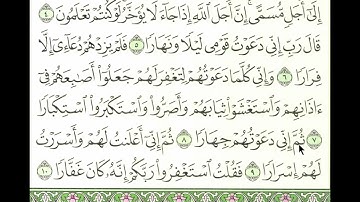 إِلَىٰٓ أَجَلٍ مُّسَمًّى ۚ إِنَّ أَجَلَ ٱللَّهِ إِذَا جَآءَ لَا يُؤَخَّرُ ۖ لَوْ كُنتُمْ تَعْلَمُونَ ٤
قَالَ رَبِّ إِنِّى دَعَوْتُ قَوْمِى لَيْلًا وَنَهَارًا ٥ فَلَمْ يَزِدْهُمْ دُعَآءِىٓ إِلَّا
فِرَارًا ٦ وَإِنِّى كُلَّمَا دَعَوْتُهُمْ لِتَغْفِرَ لَهُمْ جَعَلُوٓا۟ أَصَٰبِعَهُمْ فِىٓ
ءَاذَانِهِمْ وَٱسْتَغْشَوْا۟ ثِيَابَهُمْ وَأَصَرُّوا۟ وَٱسْتَكْبَرُوا۟ ٱسْتِكْبَارًا
٧ ثُمَّ إِنِّى دَعَوْتُهُمْ جِهَارًا ٨ ثُمَّ إِنِّىٓ أَعْلَنتُ لَهُمْ وَأَسْرَرْتُ
لَهُمْ إِسْرَارًا ٩ فَقُلْتُ ٱسْتَغْفِرُوا۟ رَبَّكُمْ إِنَّهُۥ كَانَ غَفَّارًا ١٠